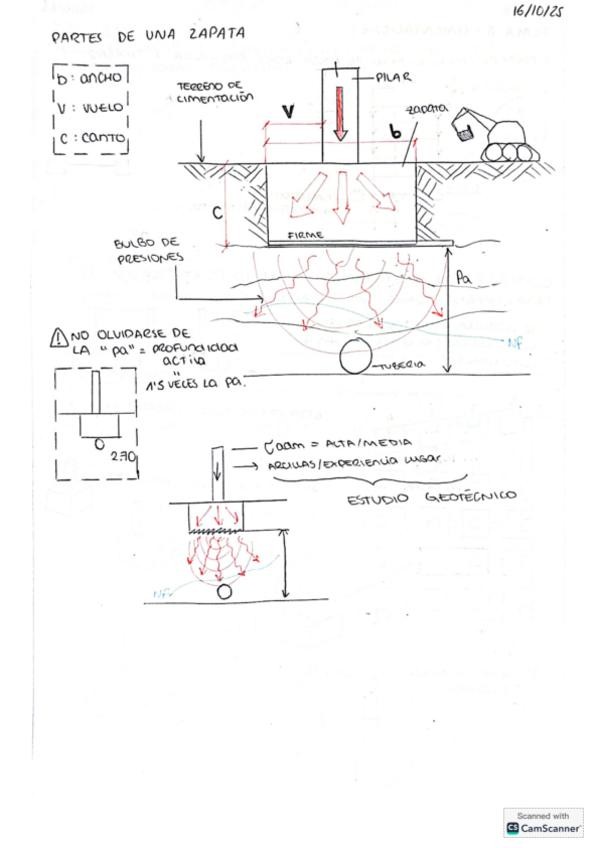 16/10/25
PARTES DE UNA ZAPATA
b: ANCHO
V: VUELO
C: CANTO
TERRENO DE
CIMENTACIÓN
PILAR
V
b
ZAPATA
C
FIRME
BULBO DE
PRESIONES
Pa
NF
TUBERIA
NO OLVIDARSE DE
LA "Pa" = PROFUNDIDAD
ACTIVA
"
1'5 VECES LA Pa.
2.70
σadm = ALTA/MEDIA
ARCILLAS/EXPERIENCIA LUGAR
ESTUDIO GEOTÉCNICO
NF
Scanned with
CS CamScanner